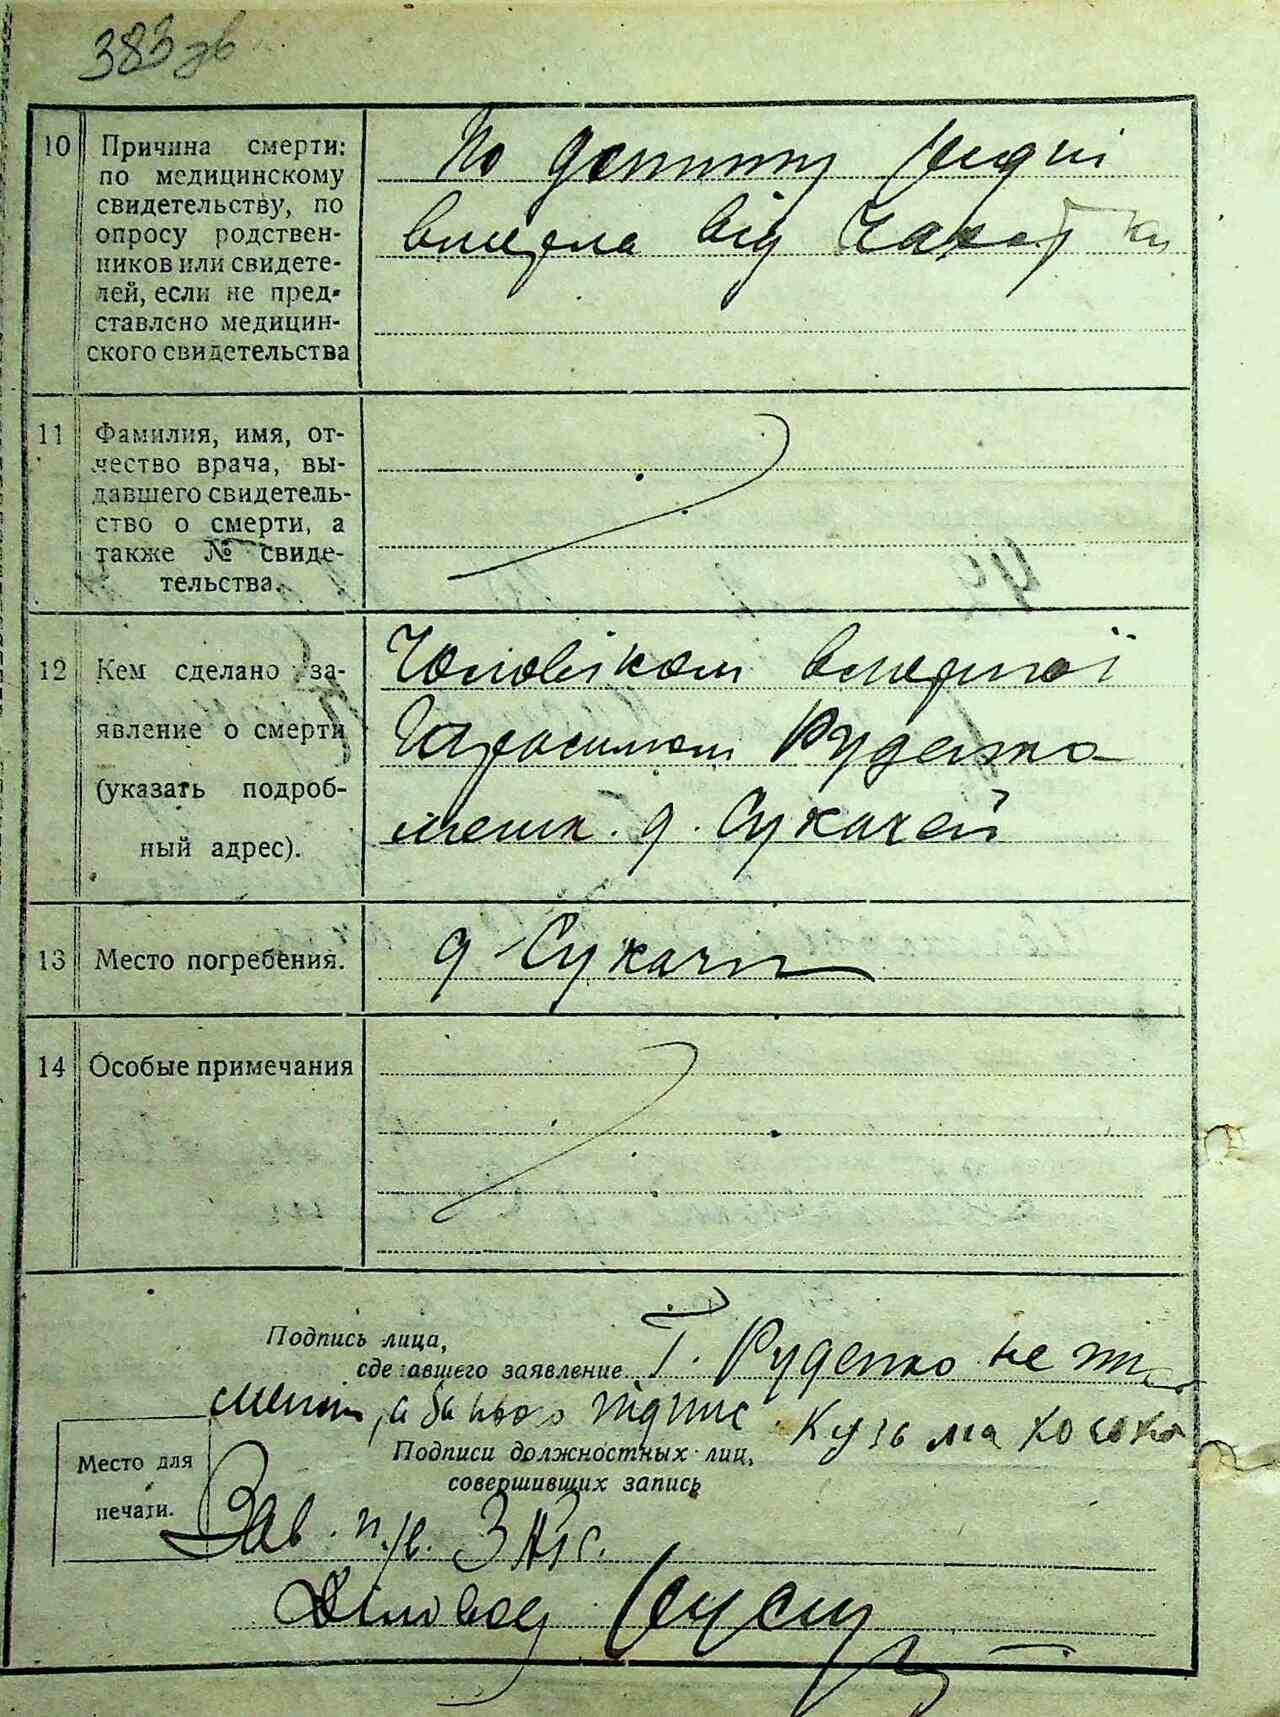 383 зв
10 Причина смерти:
по медицинскому
свидетельству, по
опросу родствен-
ников или свидете-
лей, если не пред-
ставлено медицин-
ского свидетельства
По допиту
вмерла від чахотки
11 Фамилия, имя, от-
чество врача, вы-
давшего свидетель-
ство о смерти, а
также № свиде-
тельства.
12 Кем сделано за-
явление о смерти
(указать подроб-
ный адрес).
Чоловіком вмершої
Гарасимом Руденко
мешк. д. Сукачей
13 Место погребения.
д Сукачі
14 Особые примечания
Подпись лица,
сделавшего заявление Г. Руденко не
а за нього підпис Кузьма
Подписи должностных лиц,
совершивших запись
Место для
печати.
Зав. п/в. ЗАГС.
Діловод